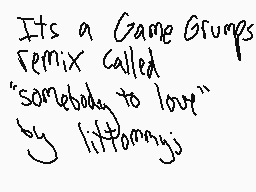 Its a Game Grumps
remix called
"somebody to love"
by liltommyj